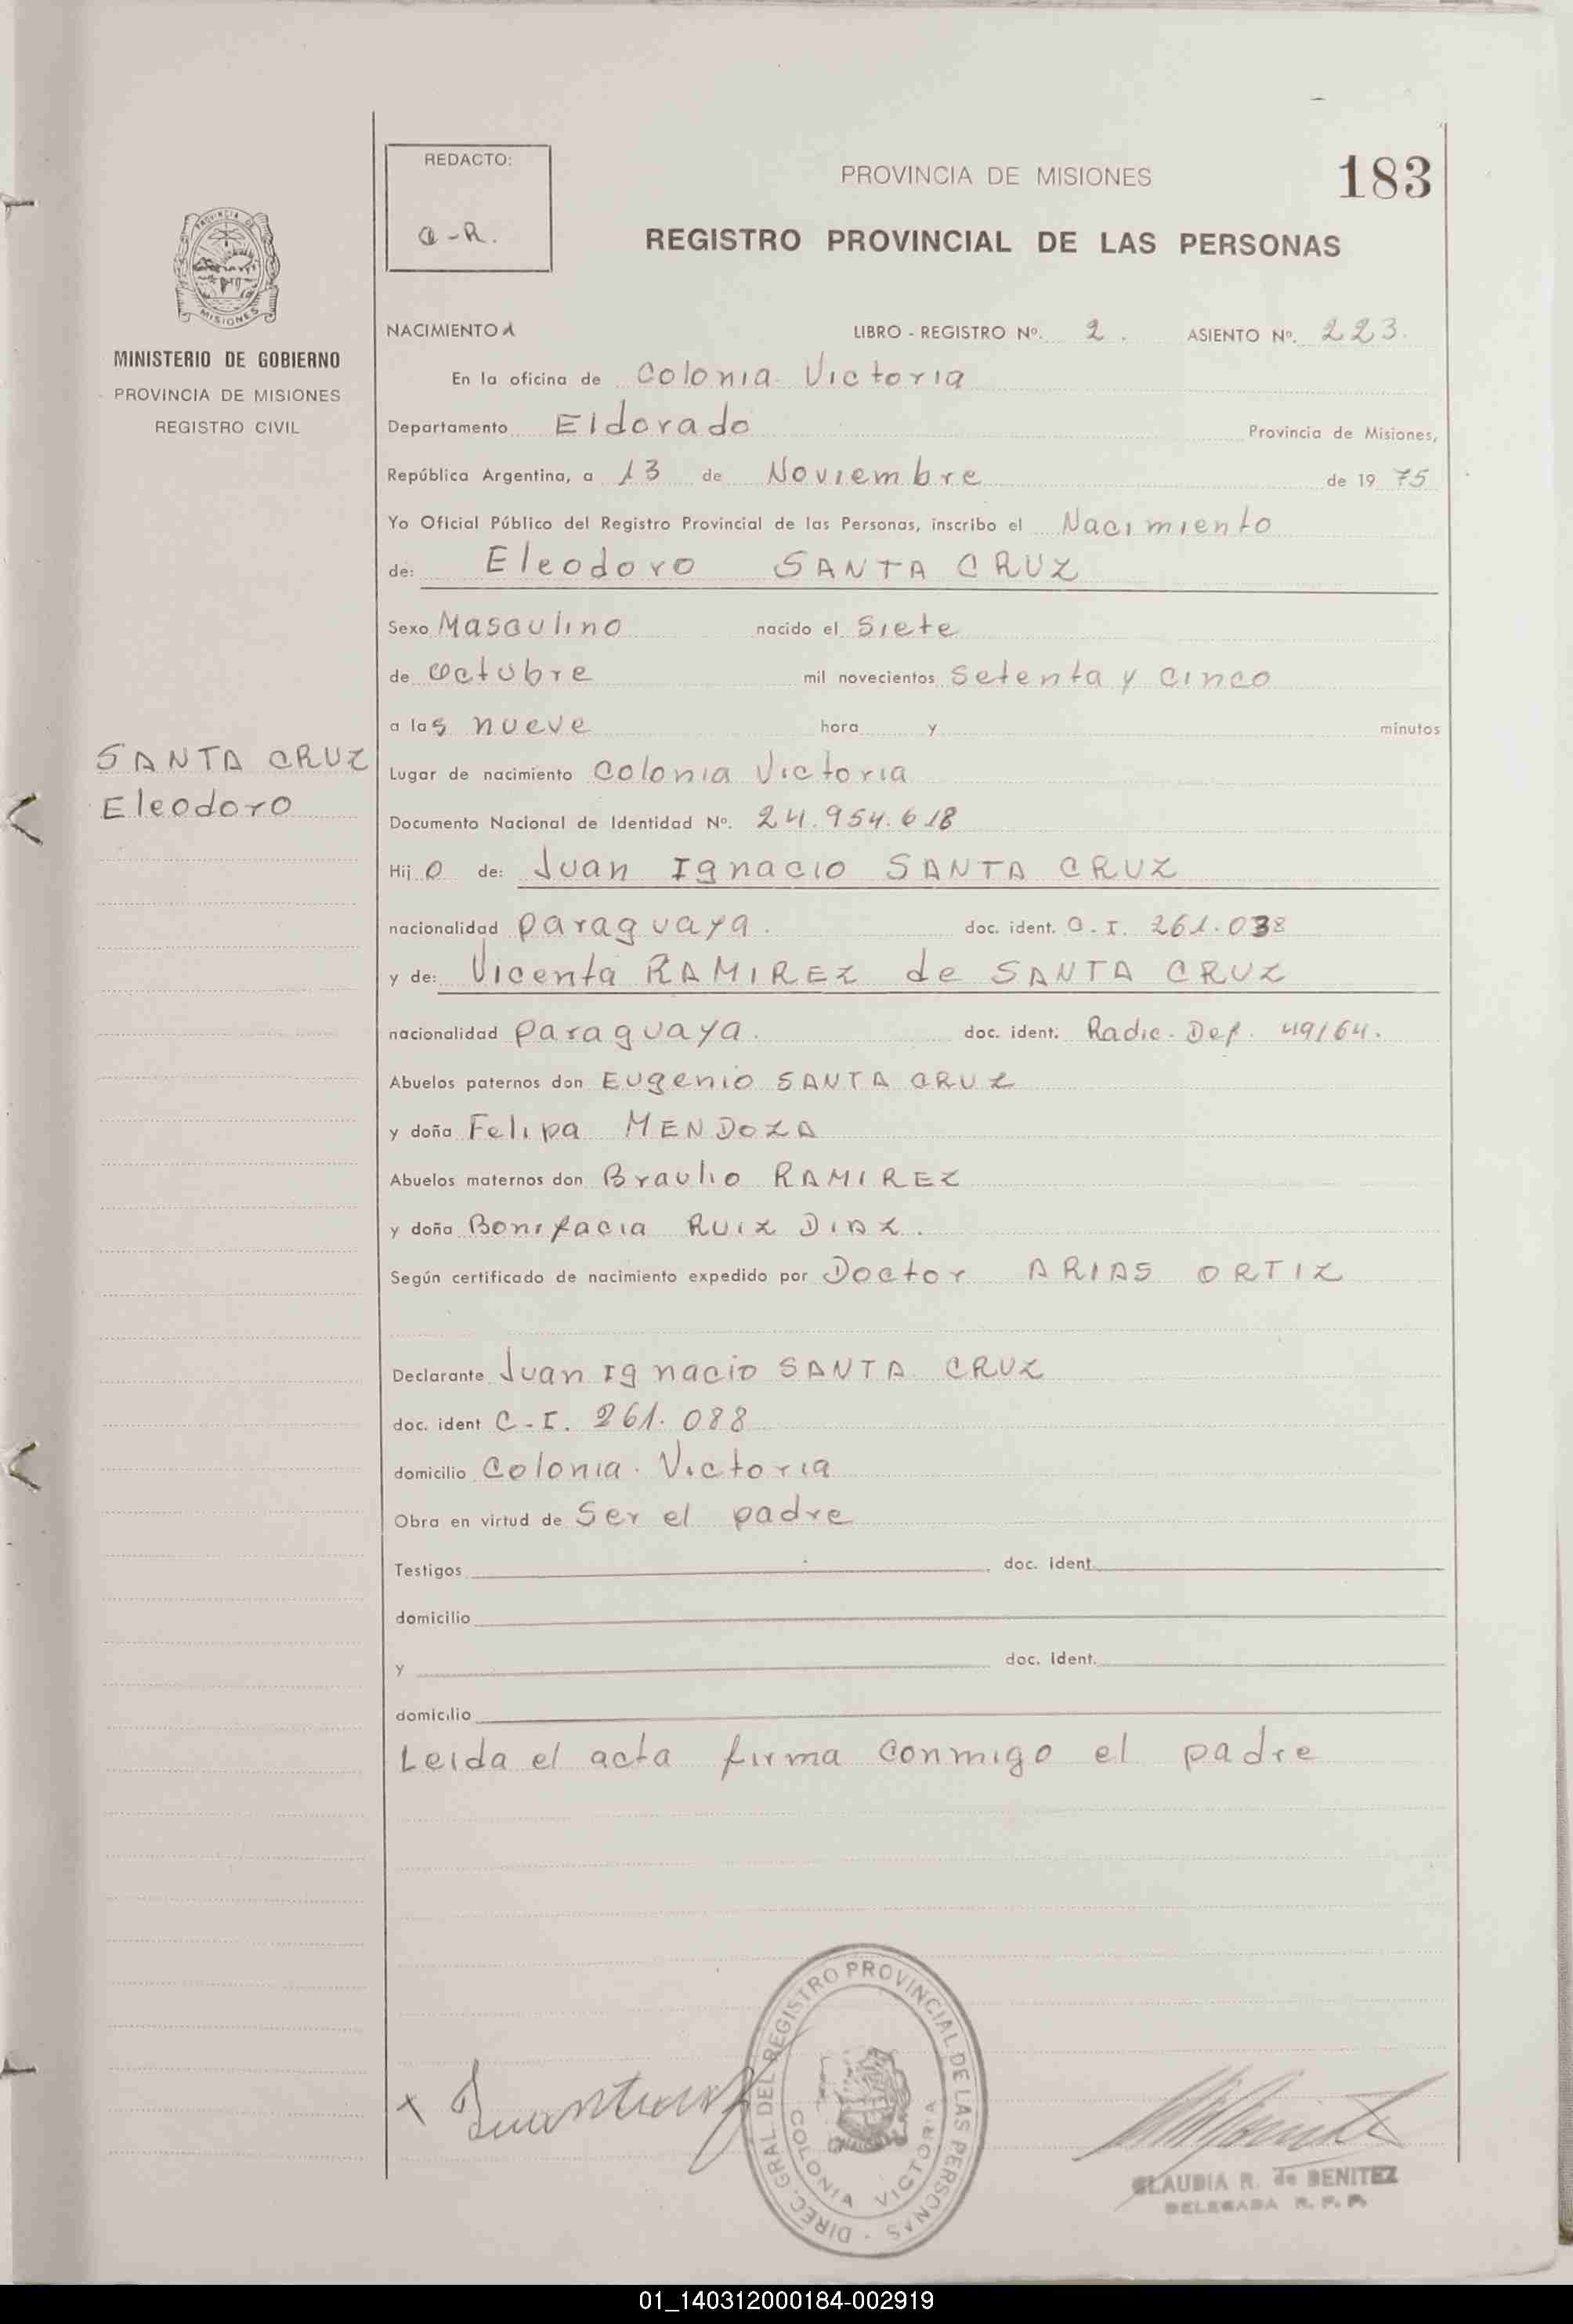 REDACTO:
C-R.
PROVINCIA DE MISIONES
183
REGISTRO PROVINCIAL DE LAS PERSONAS
PROVINCIA DE
MISIONES
MINISTERIO DE GOBIERNO
PROVINCIA DE MISIONES
REGISTRO CIVIL
NACIMIENTO LIBRO - REGISTRO Nº. 2. ASIENTO Nº. 223.
En la oficina de Colonia Victoria
Departamento Eldorado Provincia de Misiones,
República Argentina, a 13 de Noviembre de 19 75
Yo Oficial Público del Registro Provincial de las Personas, inscribo el Nacimiento
de: Eleodoro SANTA CRUZ
Sexo Masculino nacido el Siete
de Octubre mil novecientos Setenta y Cinco
a las nueve hora y minutos
SANTA CRUZ
Eleodoro
Lugar de nacimiento Colonia Victoria
Documento Nacional de Identidad Nº. 24.954.618
Hijo de: Juan Ignacio SANTA CRUZ
nacionalidad paraguaya. doc. ident. C.I. 261.038
y de: Vicenta RAMIREZ de SANTA CRUZ
nacionalidad paraguaya. doc. ident. Radic. Def. 49/64.
Abuelos paternos don Eugenio SANTA CRUZ
y doña Felipa MENDOZA
Abuelos maternos don Braulio RAMIREZ
y doña Bonifacia RUIZ DIAZ.
Según certificado de nacimiento expedido por Doctor ARIAS ORTIZ
Declarante Juan Ignacio SANTA CRUZ
doc. ident C-I. 261.088
domicilio Colonia Victoria
Obra en virtud de Ser el padre
Testigos doc. ident.
domicilio
y doc. ident.
domicilio
Leida el acta firma conmigo el padre
DIREC. GRAL. DEL REGISTRO PROVINCIAL DE LAS PERSONAS
COLONIA VICTORIA
CLAUDIA R. de BENITEZ
DELEGADA R. P. P.
01_140312000184-002919